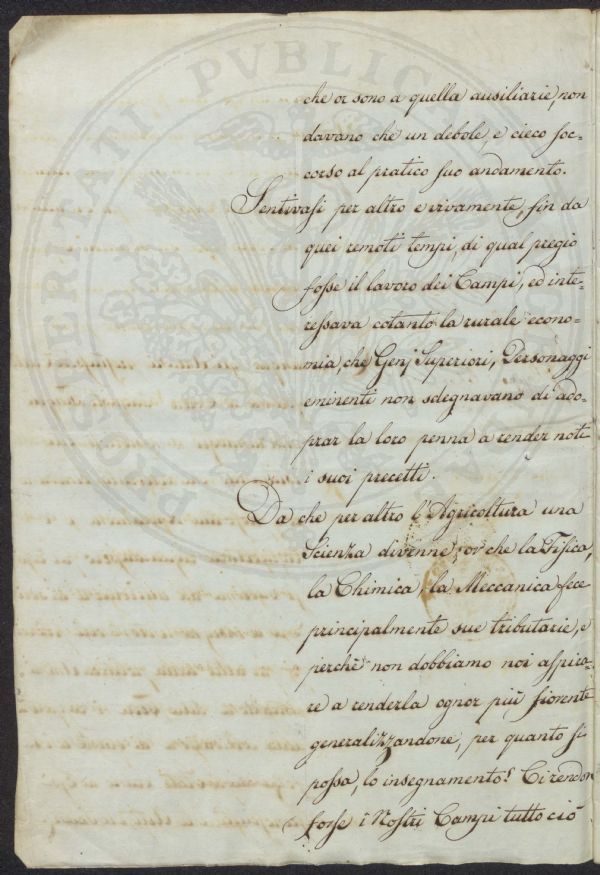 PROSPERITATI PVBLICAE
che or sono a quella ausiliarie, non
davano che un debole, e cieco soc=
corso al pratico suo andamento.
Sentivasi per altro e vivamente, fin da
quei remoti tempi, di qual pregio
fosse il lavoro dei Campi, ed inte=
ressava cotanto la rurale econo=
mia, che Genj Superiori, Personaggi
eminenti non sdegnavano di ado=
prar la loro penna a render noti
i suoi precetti.
Da che per altro l'Agricoltura una
Scienza divenne, or che la Fisica,
la Chimica, la Meccanica fece
principalmente sue tributarie, e
perchè non dobbiamo noi aspira=
re a renderla ognor più fiorente
generalizzandone, per quanto si
possa, lo insegnamento? Ci rendon
forse i Nostri Campi tutto ciò